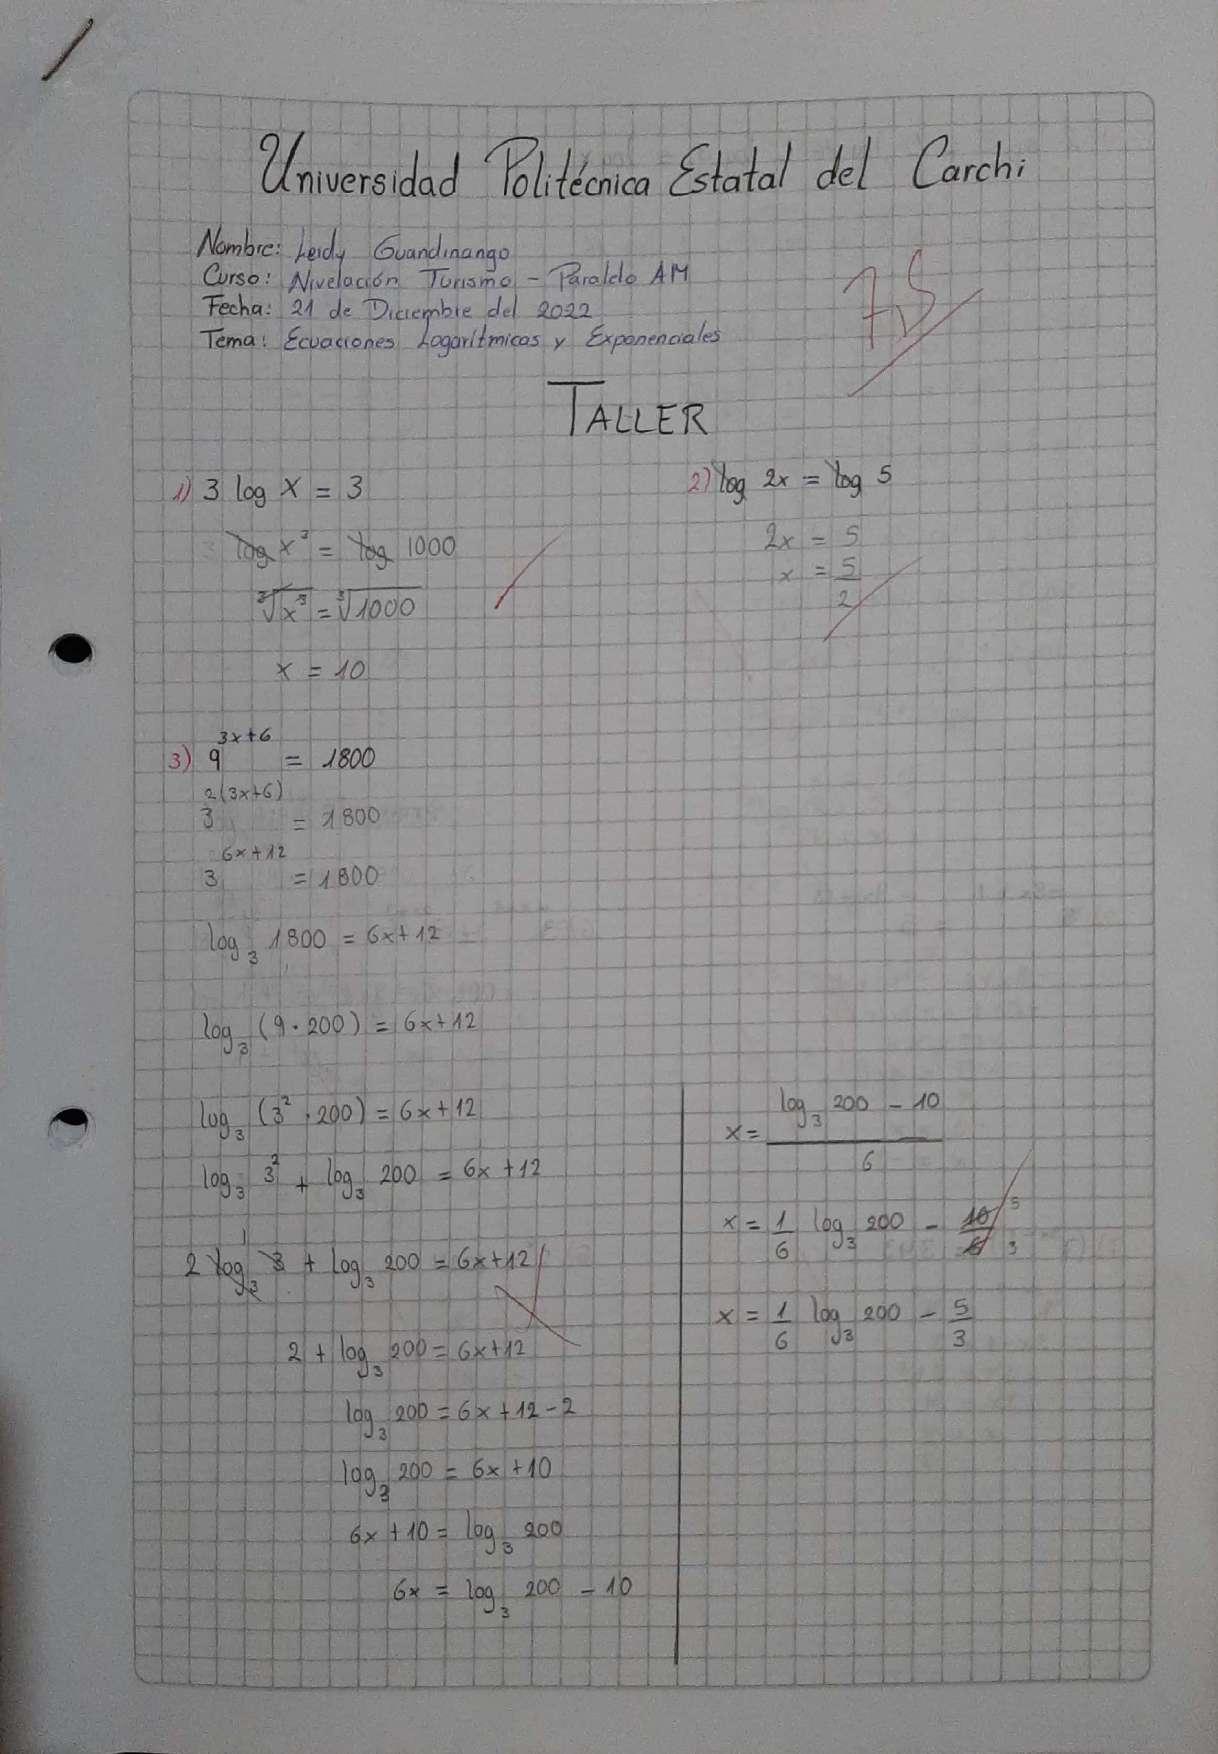 Universidad Politécnica Estatal del Carchi
Nombre: Leidy Guandinango
Curso: Nivelación Turismo - Paralelo AM
Fecha: 21 de Diciembre del 2022
Tema: Ecuaciones Logarítmicas y Exponenciales
7,5
TALLER
1) 3 log x = 3
log x³ = log 1000
∛x³ = ∛1000
x = 10
2) log 2x = log 5
2x = 5
x = 5/2
3) 9^(3x+6) = 1800
3^(2(3x+6)) = 1800
3^(6x+12) = 1800
log₃ 1800 = 6x+12
log₃ (9 · 200) = 6x+12
log₃ (3² · 200) = 6x+12
log₃ 3² + log₃ 200 = 6x+12
1
2 log₃ 3 + log₃ 200 = 6x+12
2 + log₃ 200 = 6x+12
log₃ 200 = 6x+12-2
log₃ 200 = 6x+10
6x+10 = log₃ 200
6x = log₃ 200 - 10
x = (log₃ 200 - 10)/6
x = 1/6 log₃ 200 - 10/6 5 3
x = 1/6 log₃ 200 - 5/3